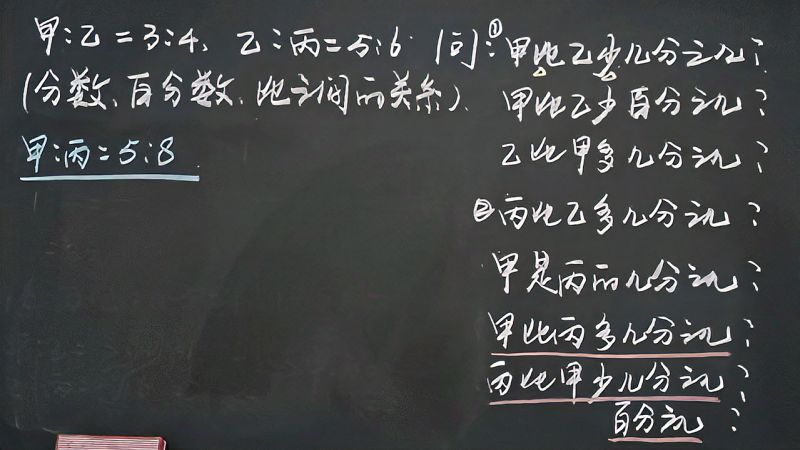 甲:乙=3:4, 乙:丙=5:6 问:①甲比乙少几分之几?
(分数、百分数、比之间的关系).
甲比乙少百分之几?
甲:丙=5:8
乙比甲多几分之几?
②丙比乙多几分之几?
甲是丙的几分之几?
甲比丙多几分之几?
丙比甲少几分之几?
百分之几?